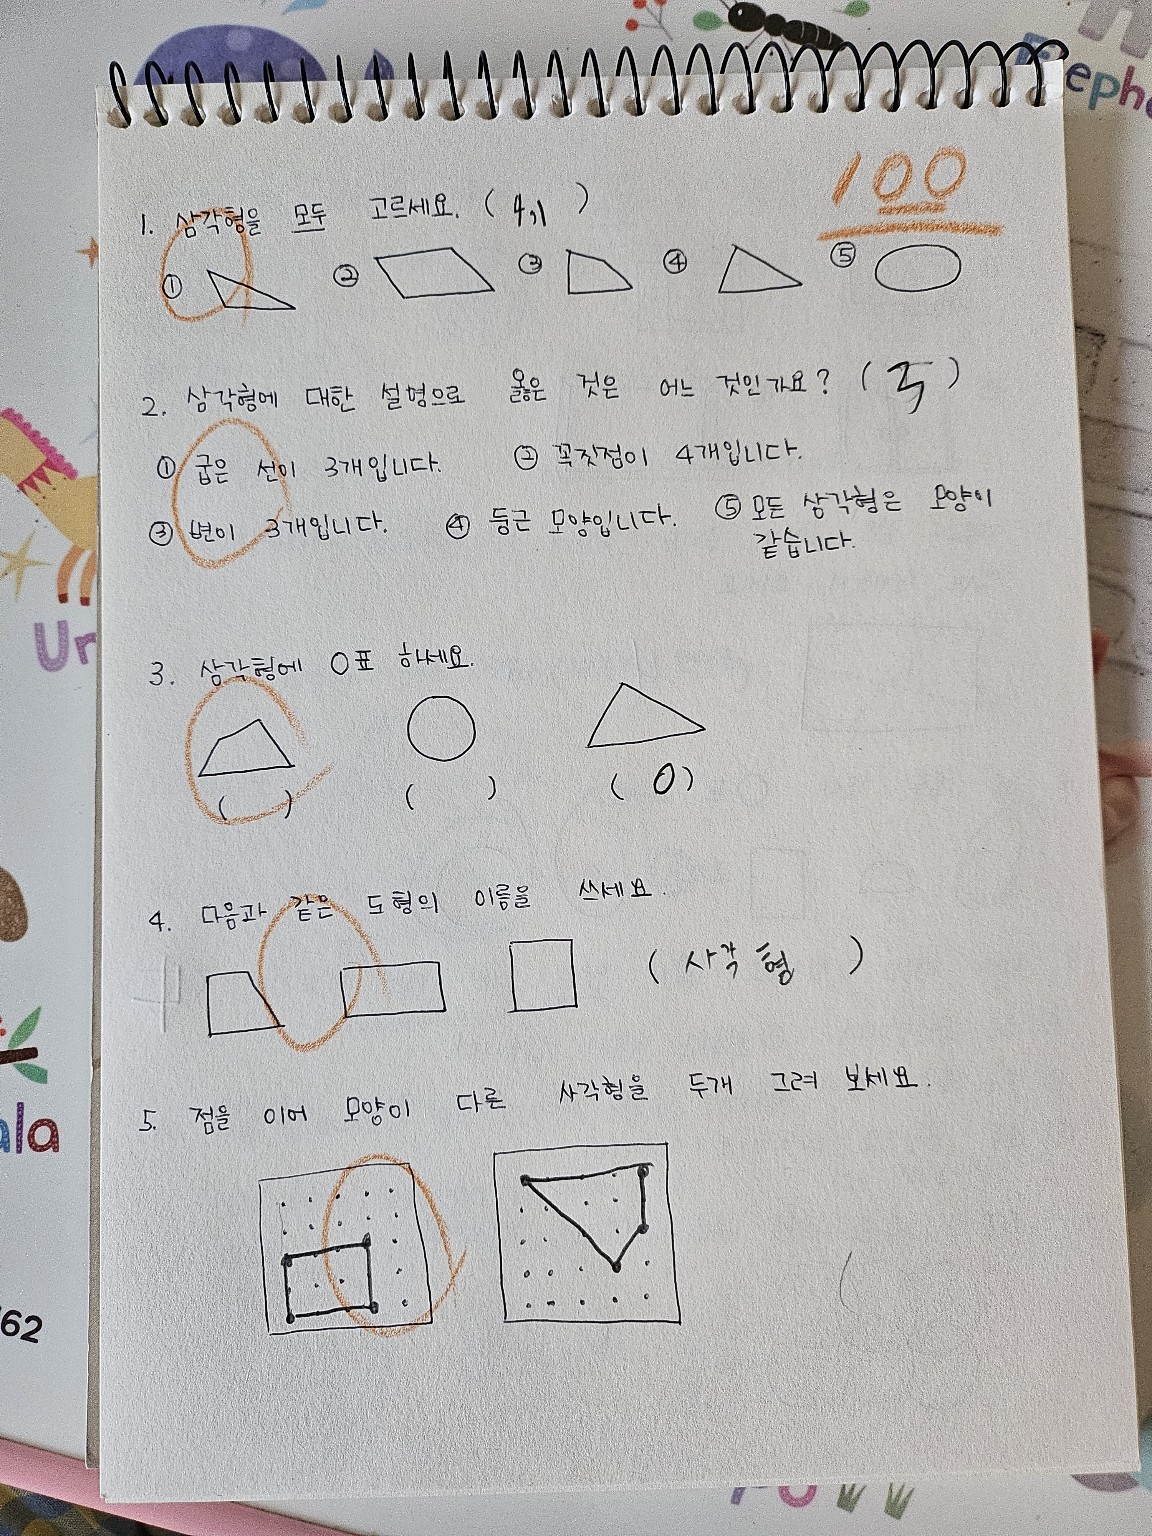 Eleph
100
1. 삼각형을 모두 고르세요. ( 4,1 )
① ② ③ ④ ⑤
2. 삼각형에 대한 설명으로 옳은 것은 어느 것인가요? ( 3 )
① 굽은 선이 3개입니다. ② 꼭짓점이 4개입니다.
③ 변이 3개입니다. ④ 둥근 모양입니다. ⑤ 모든 삼각형은 모양이
같습니다.
Un
3. 삼각형에 O표 하세요.
( ) ( ) ( O )
4. 다음과 같은 도형의 이름을 쓰세요.
( 사각형 )
5. 점을 이어 모양이 다른 사각형을 두개 그려 보세요.
ala
62